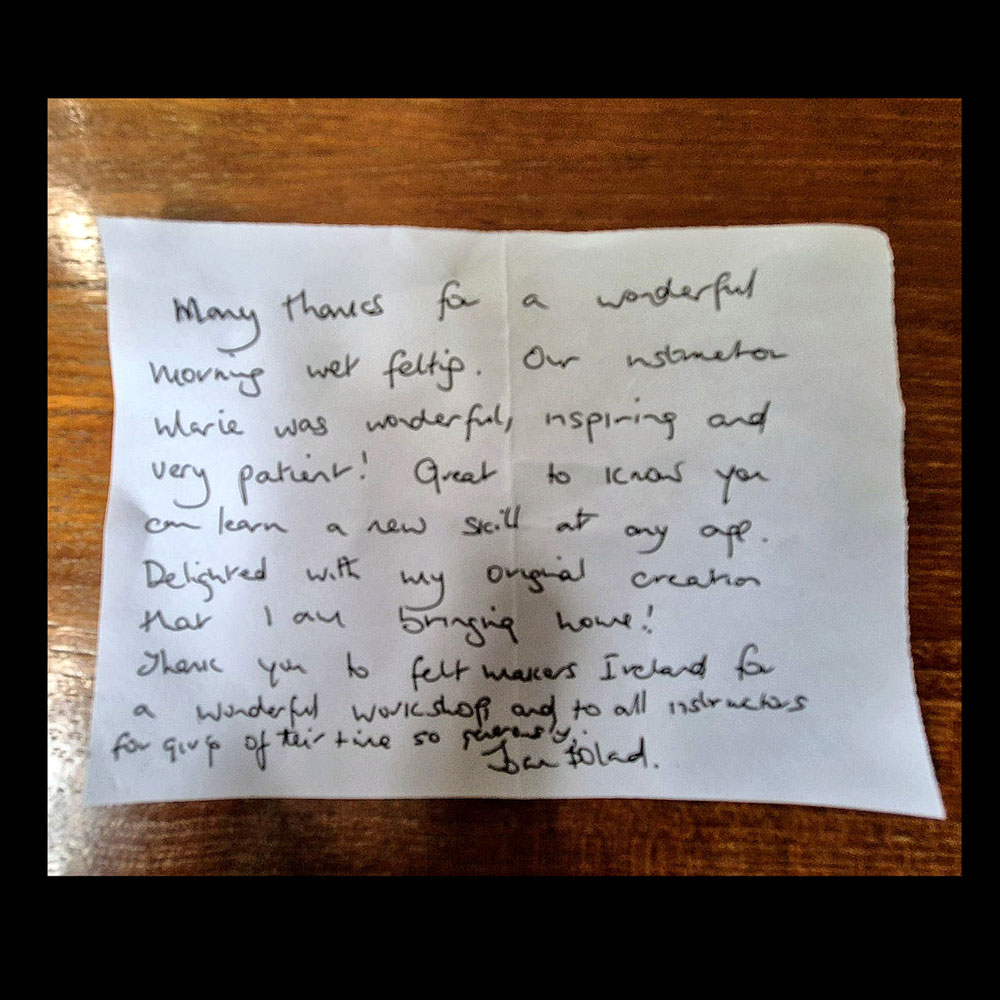 Many thanks for a wonderful
morning wet felting. Our instructor
Marie was wonderful, inspiring and
very patient! Great to know you
can learn a new skill at any age.
Delighted with my original creation
that I am bringing home!
Thank you to felt makers Ireland for
a wonderful workshop and to all instructors
for giving of their time so generously.